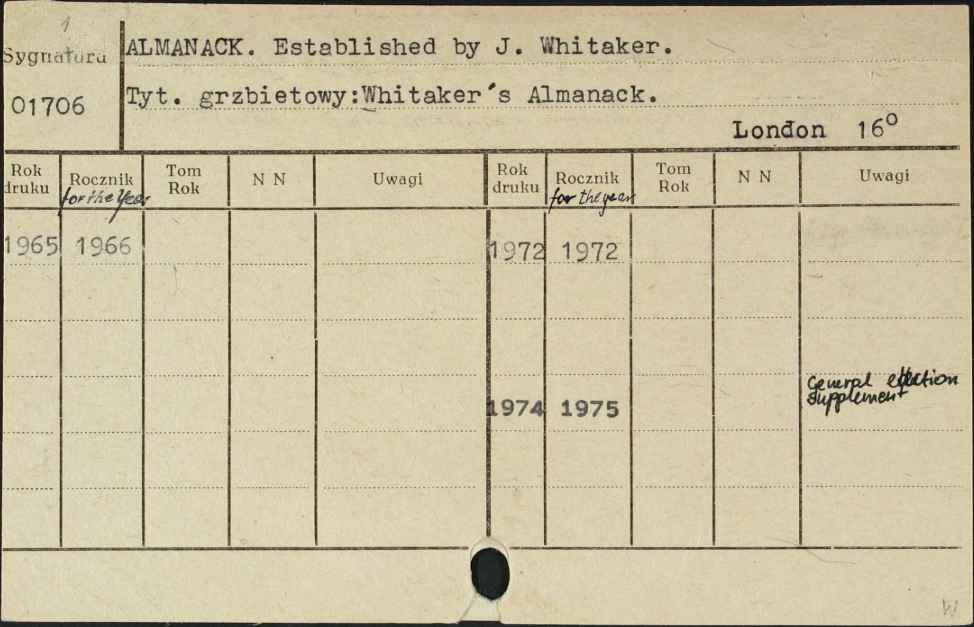 1
Sygnatura
01706
ALMANACK. Established by J. Whitaker.
Tyt. grzbietowy:Whitaker´s Almanack.
London 16o
Rok druku Rocznik for the Year Tom Rok N N Uwagi Rok druku Rocznik for the year Tom Rok N N Uwagi
1965 1966 1972 1972
1974 1975 General election supplement
W